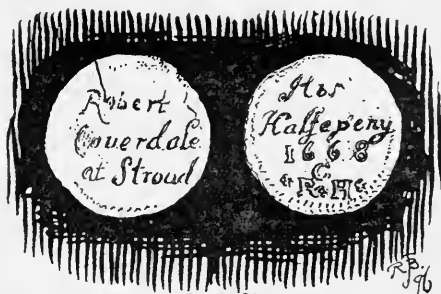 Robert
Couerdale
at Stroud
His
Halfepeny
1668
C
R H
R.B.
96